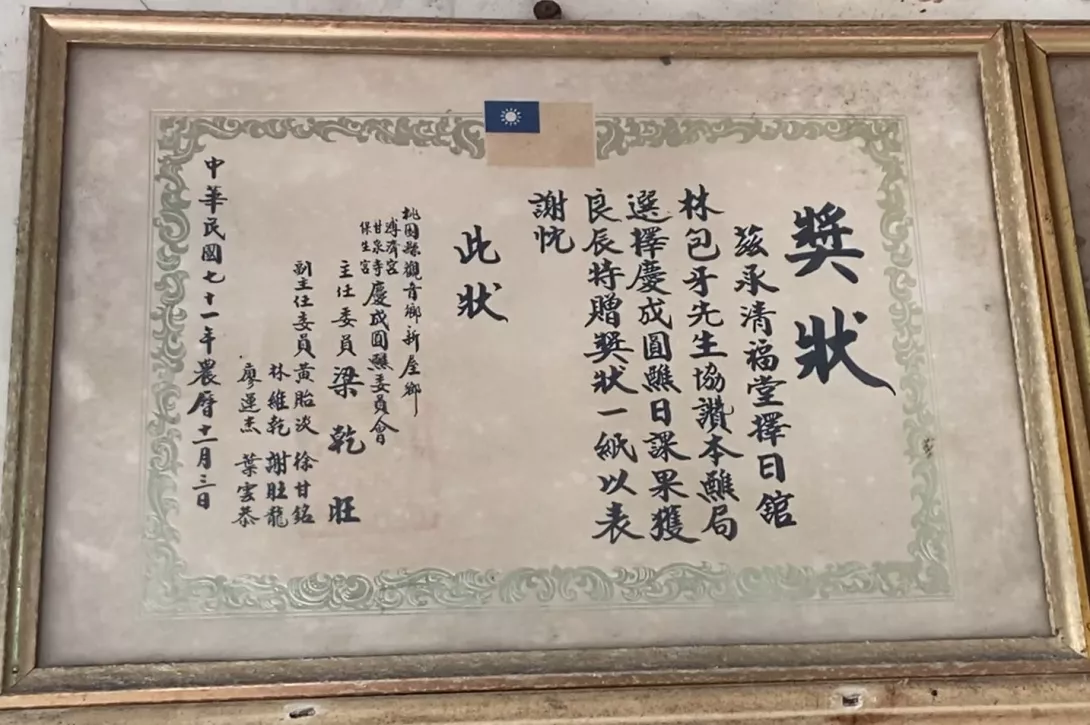 獎狀
茲承清福堂擇日舘
林包牙先生協讚本醮局
選擇慶成圓醮日課果獲
良辰特贈獎狀一紙以表
謝忱
此狀
桃園縣觀音鄉新屋鄉
溥濟宮
甘泉寺
保生宮
慶成圓醮委員會
主任委員 梁乾旺
副主任委員 黃貽淡 徐甘銘
林維乾 謝旺龍
廖運杰 葉雲恭
中華民國七十一年農曆十二月三日